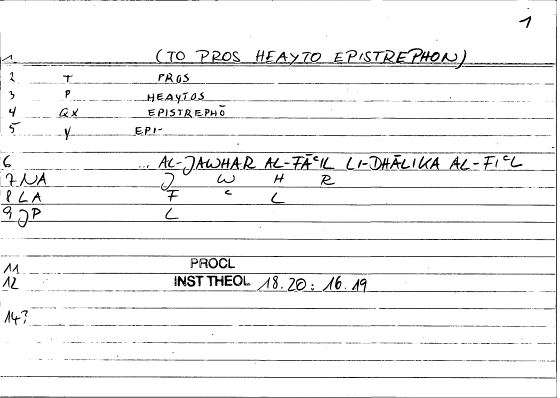 1
1 (TO PROS HEAYTO EPISTREPHON)
2 T PROS
3 P HEAYTOS
4 QX EPISTREPHŌ
5 V EPI-
6 ... AL-JAWHAR AL-FĀᶜIL LI-DHĀLIKA AL-FIᶜL
7 NA J W H R
8 LA F ᶜ L
9 JP L
11 PROCL
12 INST THEOL 18.20: 16.19
14?